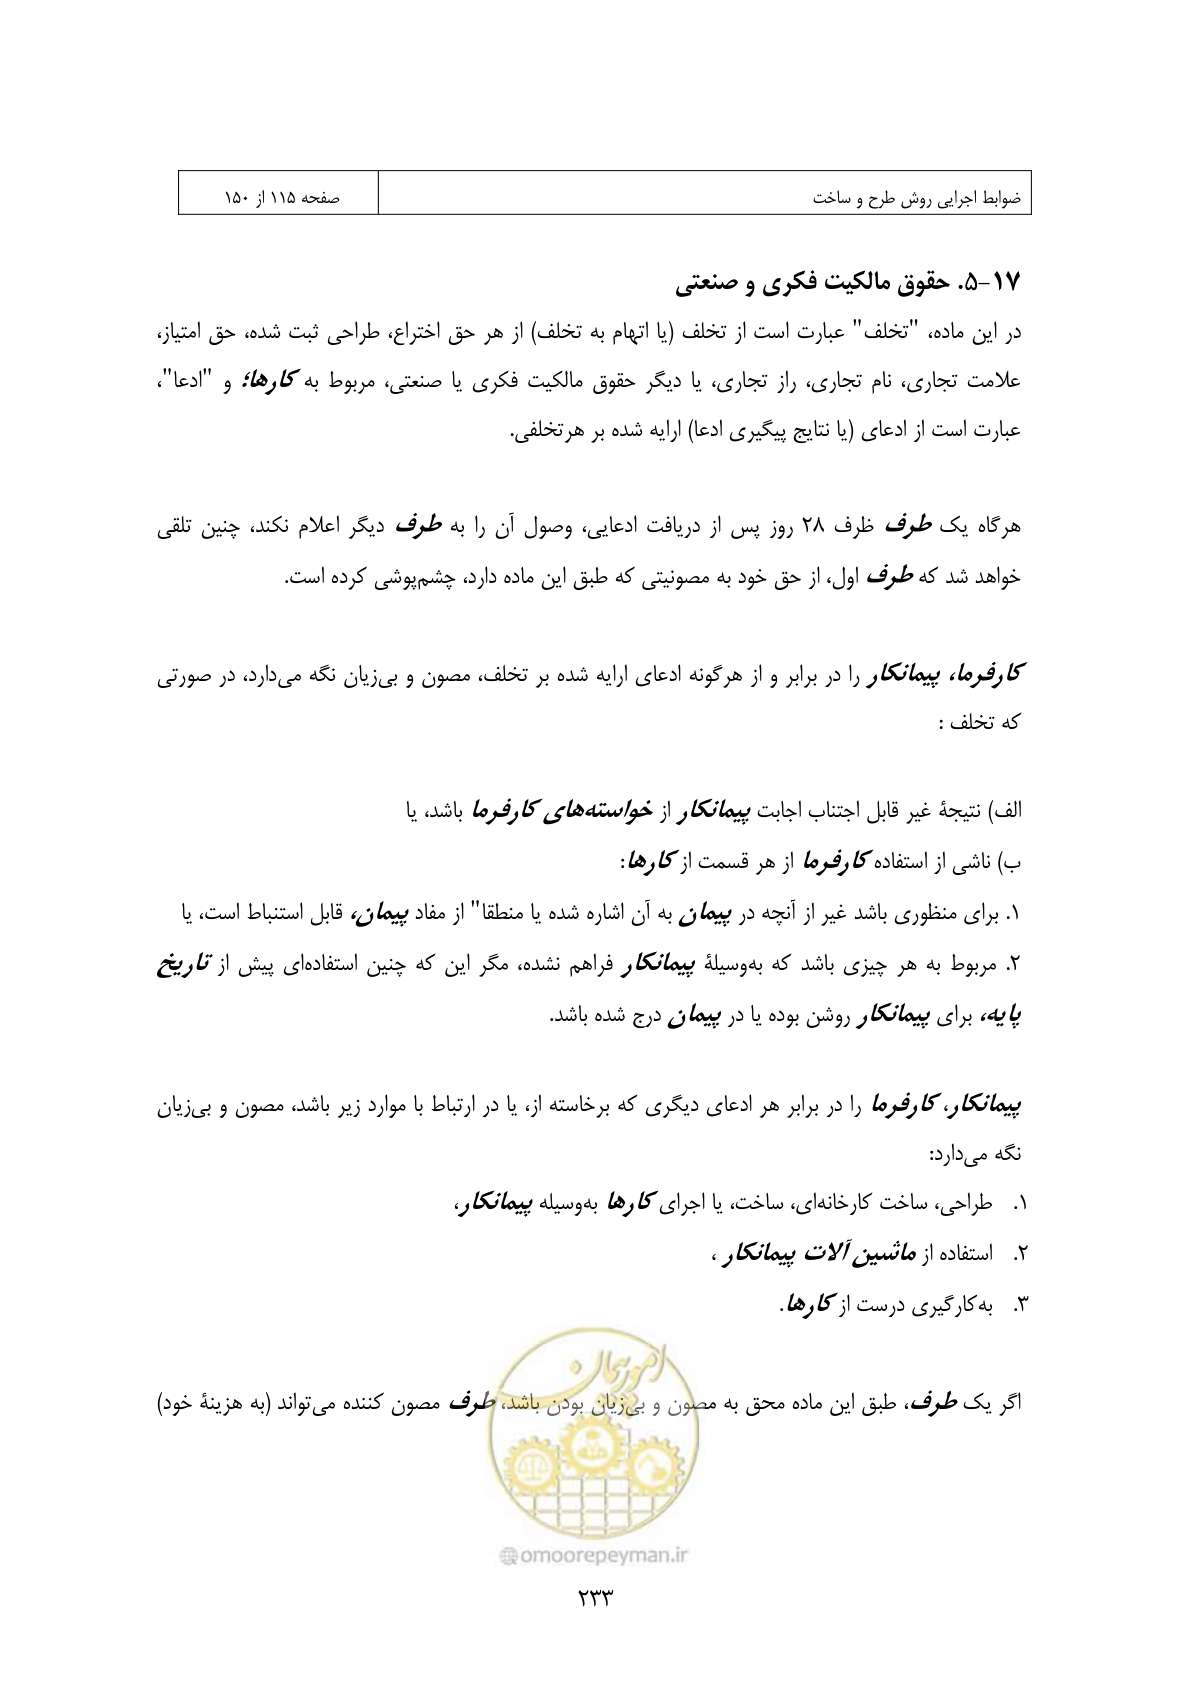 ضوابط اجرایی روش طرح و ساخت
صفحه ۱۱۵ از ۱۵۰
۱۷-۵. حقوق مالکیت فکری و صنعتی
در این ماده، "تخلف" عبارت است از تخلف (یا اتهام به تخلف) از هر حق اختراع، طراحی ثبت شده، حق امتیاز،
علامت تجاری، نام تجاری، راز تجاری، یا دیگر حقوق مالکیت فکری یا صنعتی، مربوط به کارها؛ و "ادعا"،
عبارت است از ادعای (یا نتایج پیگیری ادعا) ارایه شده بر هرتخلفی.
هرگاه یک طرف ظرف ۲۸ روز پس از دریافت ادعایی، وصول آن را به طرف دیگر اعلام نکند، چنین تلقی
خواهد شد که طرف اول، از حق خود به مصونیتی که طبق این ماده دارد، چشم‌پوشی کرده است.
کارفرما، پیمانکار را در برابر و از هرگونه ادعای ارایه شده بر تخلف، مصون و بی‌زیان نگه می‌دارد، در صورتی
که تخلف :
الف) نتیجهٔ غیر قابل اجتناب اجابت پیمانکار از خواسته‌های کارفرما باشد، یا
ب) ناشی از استفاده کارفرما از هر قسمت از کارها:
۱. برای منظوری باشد غیر از آنچه در پیمان به آن اشاره شده یا منطقا" از مفاد پیمان، قابل استنباط است، یا
۲. مربوط به هر چیزی باشد که به‌وسیلهٔ پیمانکار فراهم نشده، مگر این که چنین استفاده‌ای پیش از تاریخ
پایه، برای پیمانکار روشن بوده یا در پیمان درج شده باشد.
پیمانکار، کارفرما را در برابر هر ادعای دیگری که برخاسته از، یا در ارتباط با موارد زیر باشد، مصون و بی‌زیان
نگه می‌دارد:
۱. طراحی، ساخت کارخانه‌ای، ساخت، یا اجرای کارها به‌وسیله پیمانکار،
۲. استفاده از ماشین آلات پیمانکار ،
۳. به‌کارگیری درست از کارها.
اگر یک طرف، طبق این ماده محق به مصون و بی‌زیان بودن باشد، طرف مصون کننده می‌تواند (به هزینهٔ خود)
امور پیمان
@omoorepeyman.ir
۲۳۳